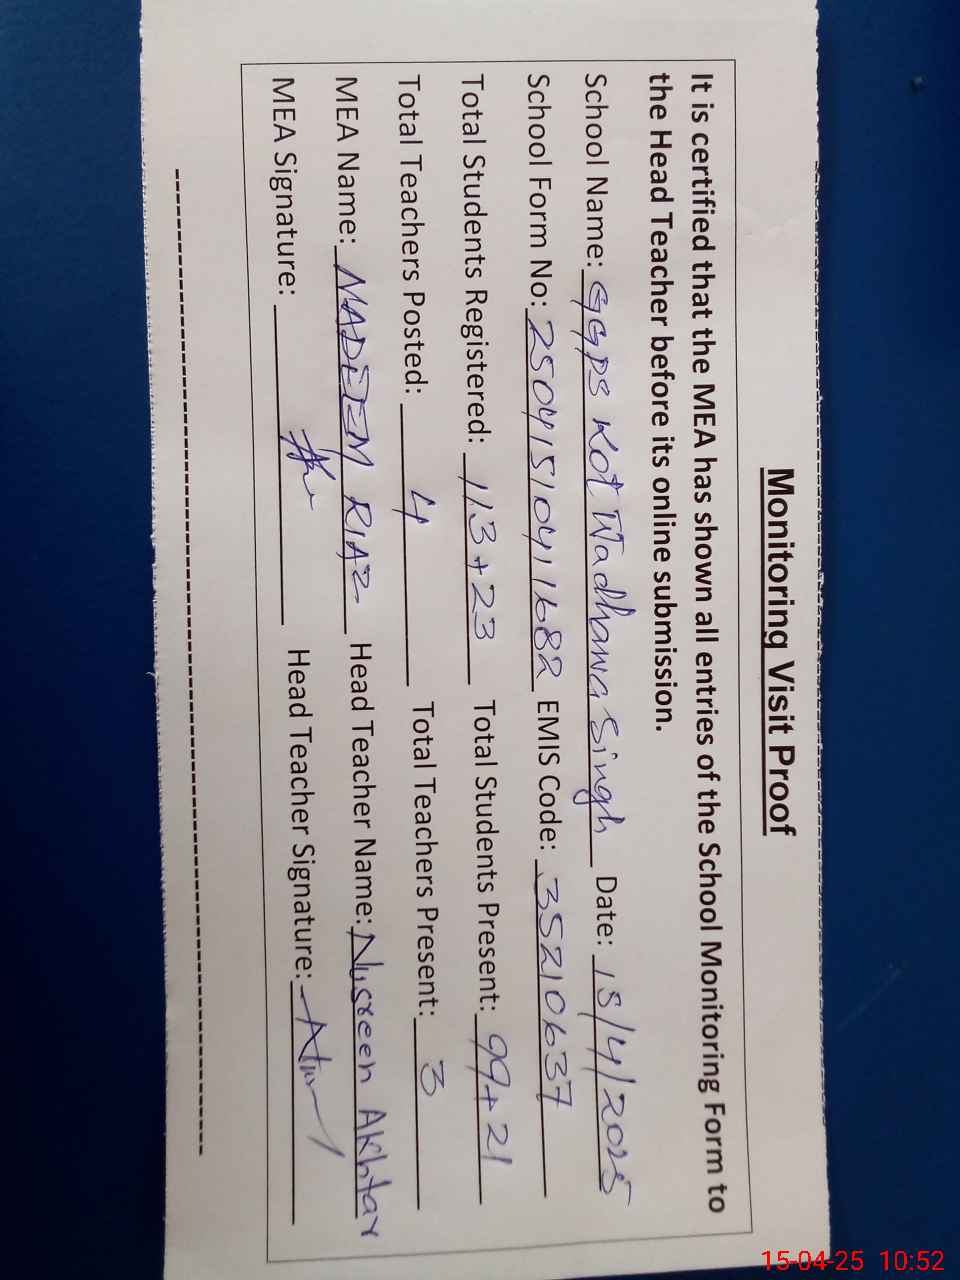 Monitoring Visit Proof
It is certified that the MEA has shown all entries of the School Monitoring Form to
the Head Teacher before its online submission.
School Name: GGPS Kot Wadhawa Singh Date: 15/4/2025
School Form No: 25041510411682 EMIS Code: 35210637
Total Students Registered: 113+23 Total Students Present: 99+21
Total Teachers Posted: 4 Total Teachers Present: 3
MEA Name: NADEEM RIAZ Head Teacher Name: Nusreen Akhtar
MEA Signature: Head Teacher Signature:
15-04-25 10:52